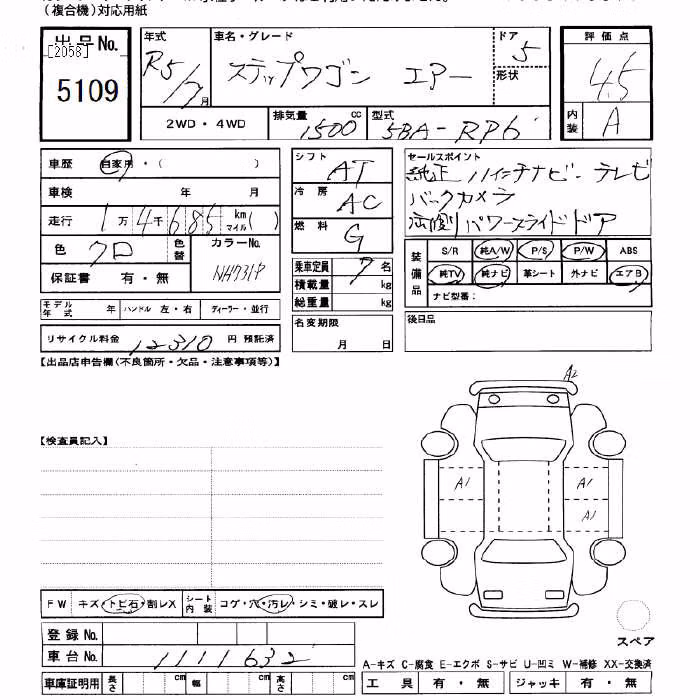 (複合機)対応用紙
出品No. 年式 車名・グレード ドア 評価点
[2058]
5109 R5/7月 ステップワゴン エアー 5 形状 4.5
2WD・4WD 排気量 1500 cc 型式 5BA-RP6 内装 A
車歴 自家用・( ) シフト AT セールスポイント
車検 年 月 冷房 AC 純正 ハイニチナビ テレビ
走行 1万4千685 km マイル( ) 燃料 G バックカメラ
両側パワースライドドア
色 クロ 色替 カラーNo. NH731P 乗車定員 7名 装備品 S/R 純A/W P/S P/W ABS
保証書 有・無 積載量 kg 純TV 純ナビ 革シート 外ナビ エアB
総重量 kg ナビ型番:
モデル年式 年 ハンドル 左・右 ディーラー・並行 名変期限 月 日 後日品
リサイクル料金 12310 円 預託済
【出品店申告欄(不良箇所・欠品・注意事項等)】
A2
【検査員記入】
A1 A1
A1
FW キズ・トビ石・割レX シート内装 コゲ・穴・汚レ・シミ・破レ・スレ
登録No. スペア
車台No. 1111632
A-キズ C-腐食 E-エクボ S-サビ U-凹ミ W-補修 XX-交換済
車庫証明用 長さ cm 幅 cm 高さ cm 工具 有・無 ジャッキ 有・無